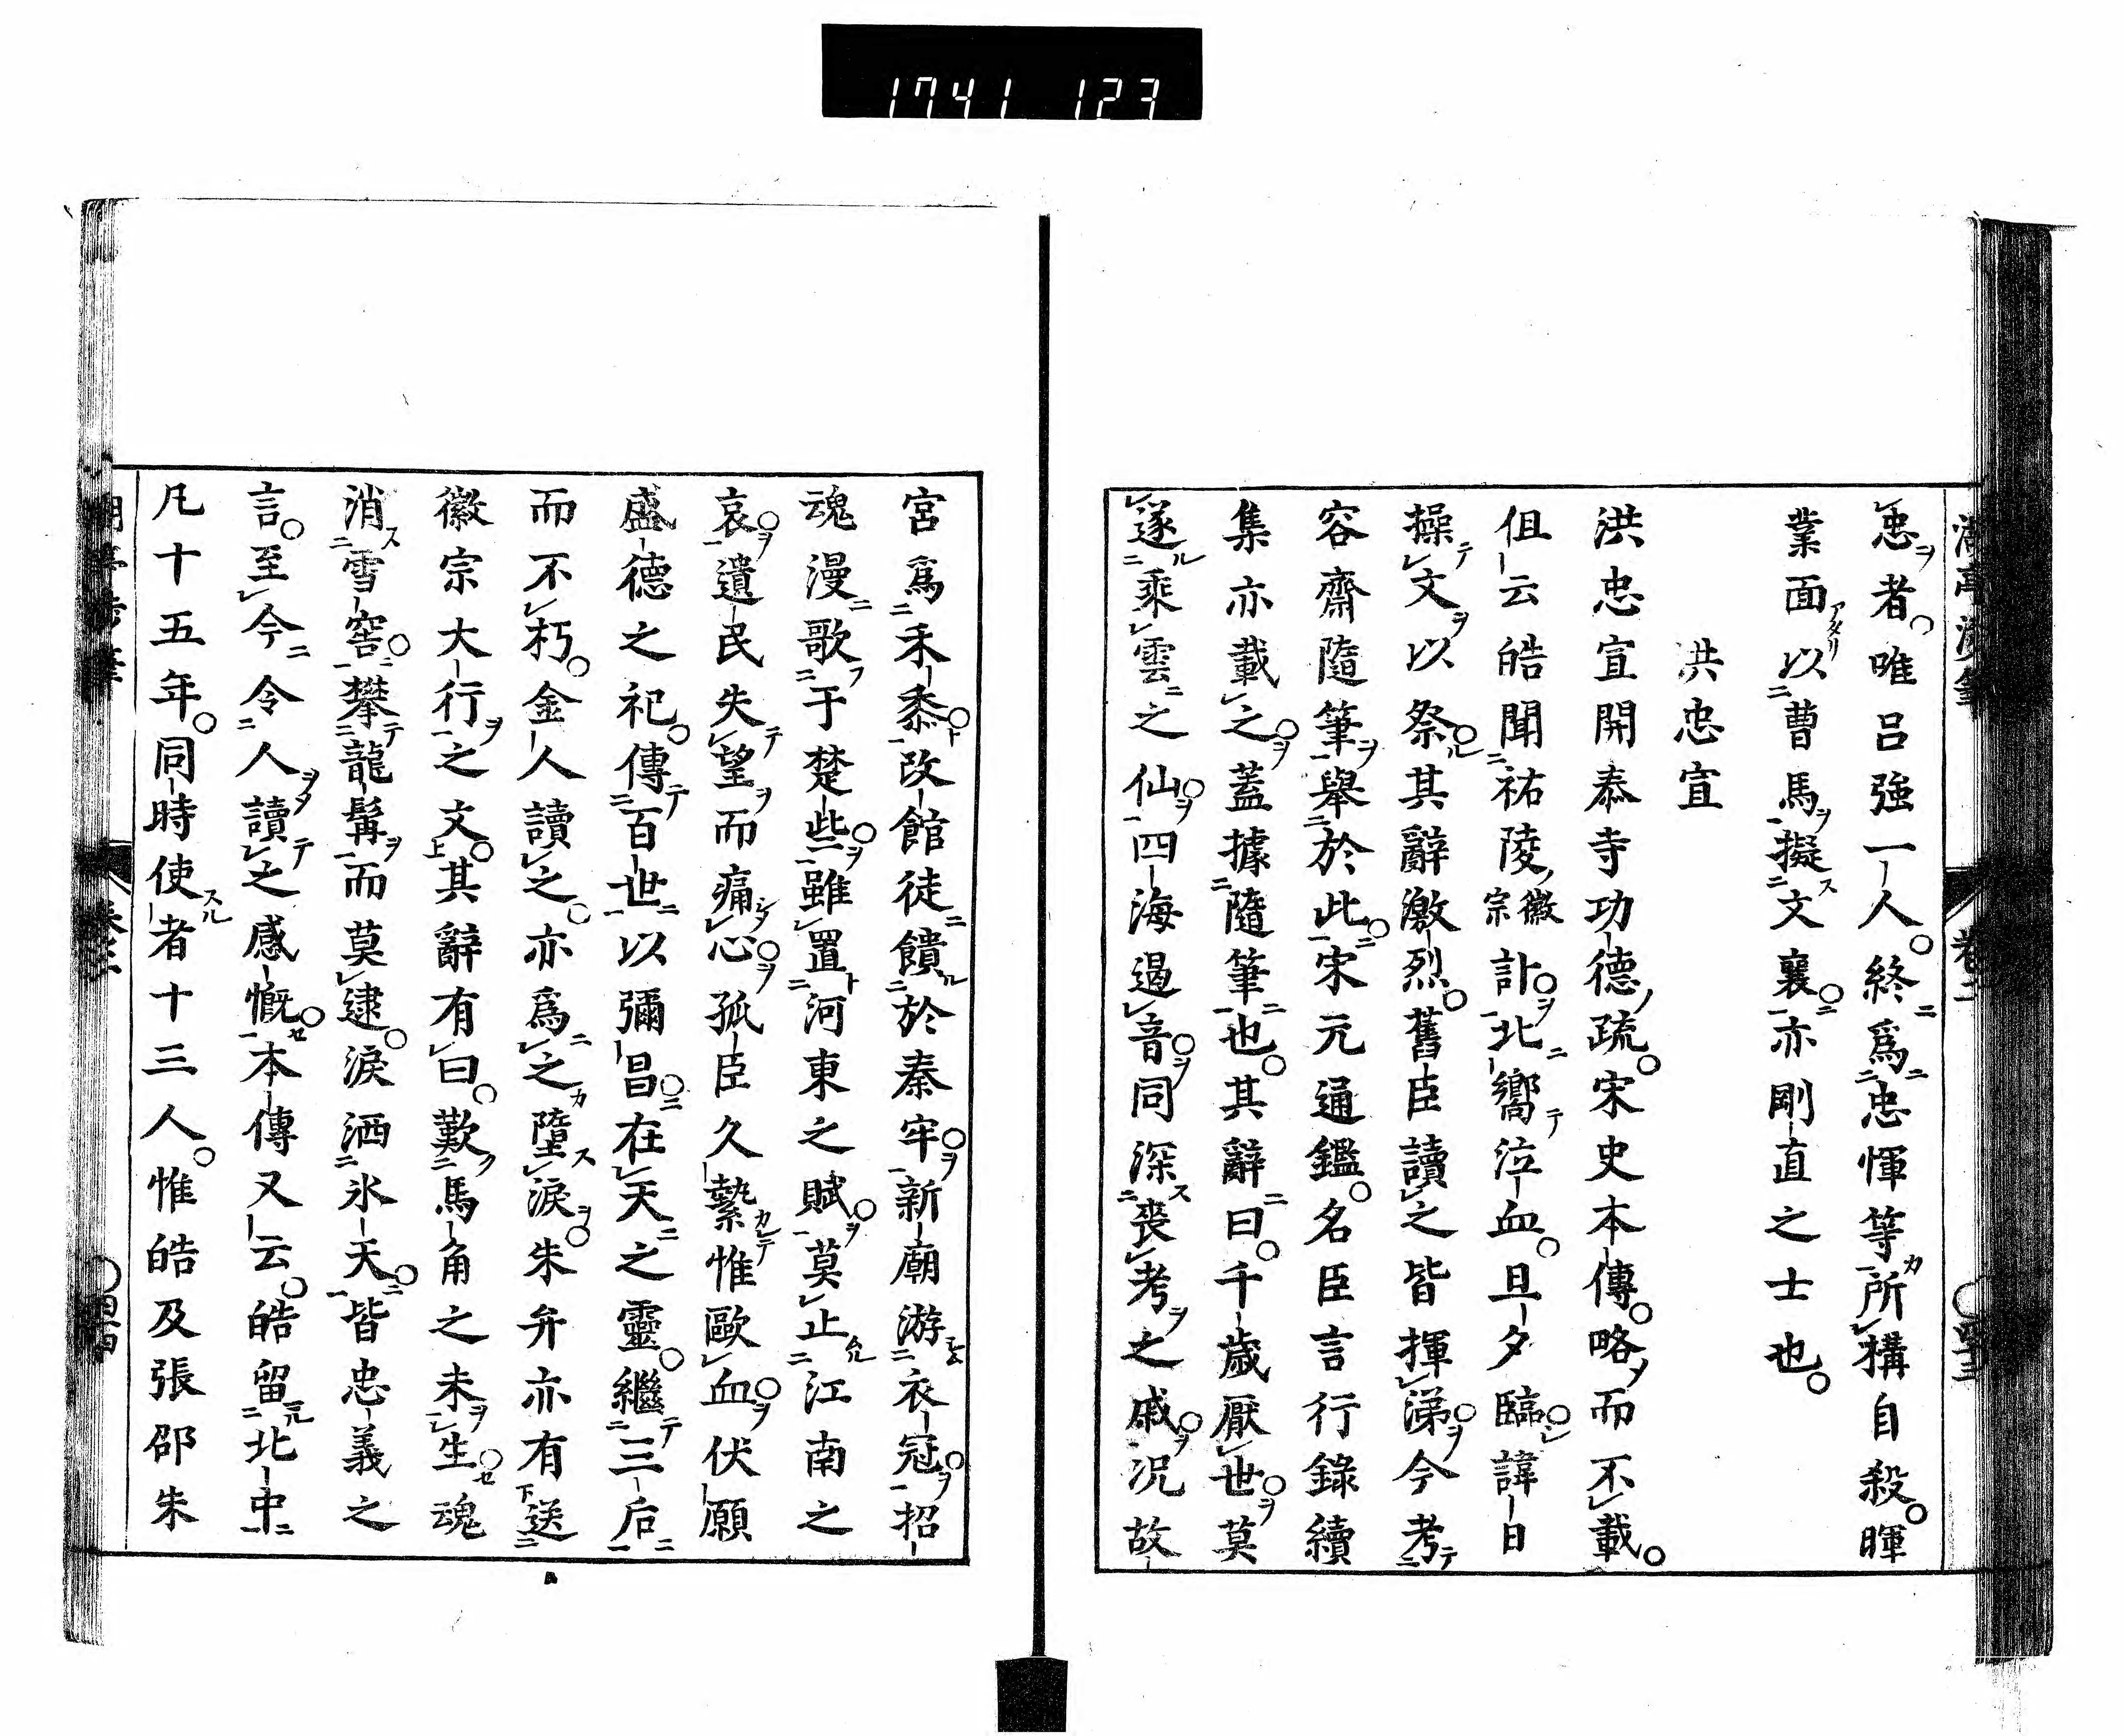 1741 123
忠者唯呂強一人終爲忠惲等所構自殺暉
業面以曹馬擬文襄亦剛直之士也
洪忠宣
洪忠宣開泰寺功德疏宋史本傳略而不載
但云皓聞祐陵徽宗訃北嚮泣血旦夕臨諱日
操文以祭其辭激烈舊臣讀之皆揮涕今考
容齋隨筆舉於此宋元通鑑名臣言行錄續
集亦載之蓋據隨筆也其辭曰千歲厭世莫
遂乘雲之仙四海遏音同深喪考之戚況故
宮爲禾黍改館徒饋於秦牢新廟游衣冠招
魂漫歌于楚些雖置河東之賦莫止江南之
哀遺民失望而痛心孤臣久縶惟歐血伏願
盛德之祀傳百世以彌昌在天之靈繼三后
而不朽金人讀之亦爲之墮淚朱弁亦有送
徽宗大行之文其辭有曰歎馬角之未生魂
消雪窖攀龍髯而莫逮淚洒氷天皆忠義之
言至今令人讀之感慨本傳又云皓留北中
凡十五年同時使者十三人惟皓及張邵朱